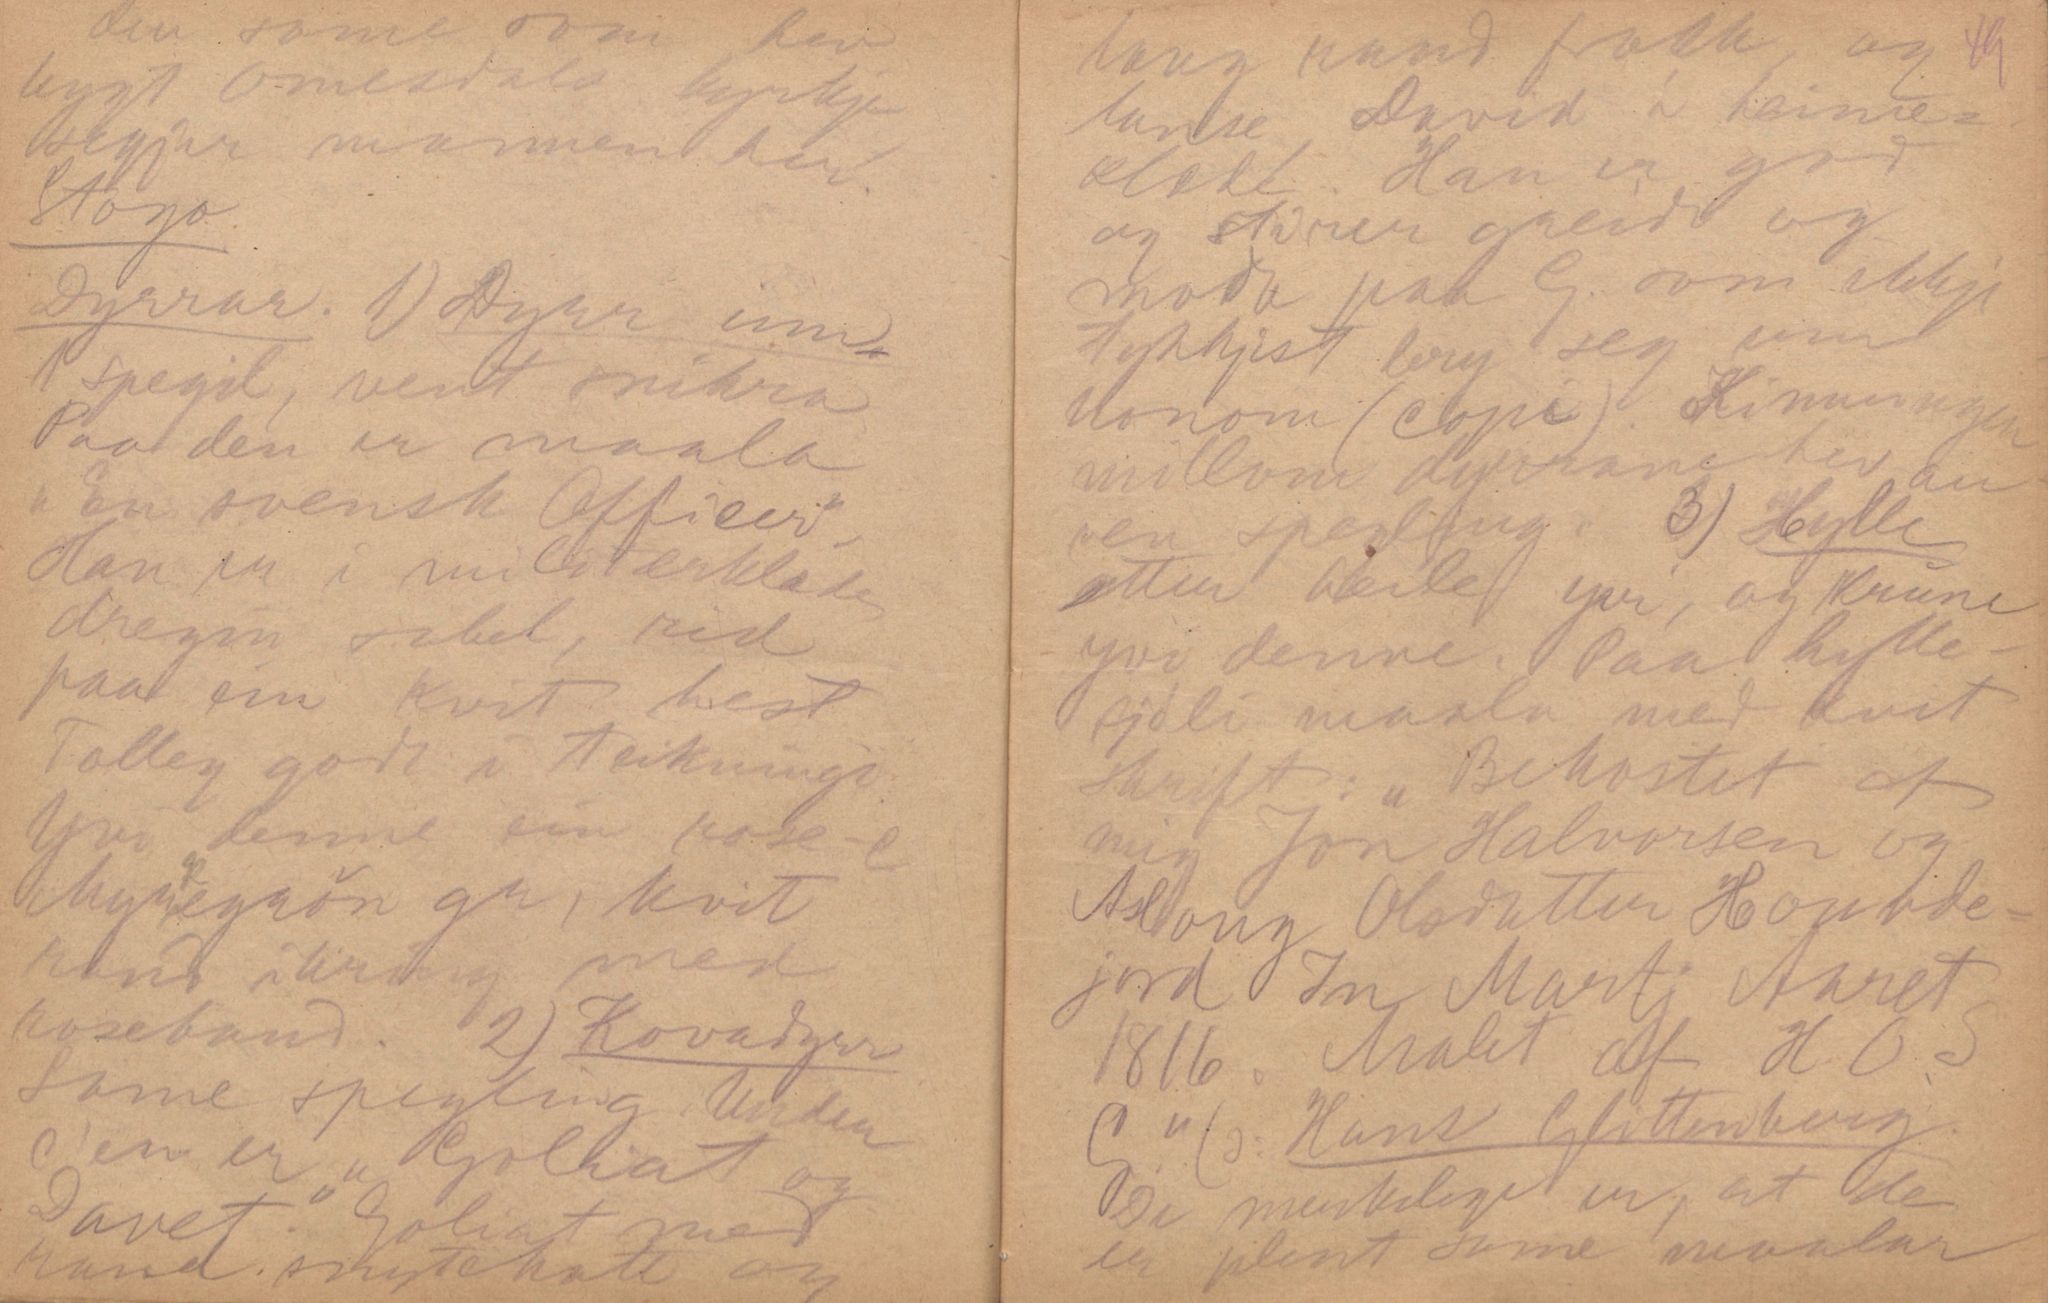 den some som hev
bygt Omesdals kyrkje
segjer mannen her.
Stogo.
Dyrrar. 1) Dyrr inn
spegil, vent snikra
Paa den er maala
"En svensk Officer",
Han er i militærklæde,
dregin sabel, rid
paa ein kvit hest
Tolleg godt i teikningi.
Yvi denne ein rose-
grøn gr, kvit
rand ikring med
roseband. 2) Kovadyrr
Same spegling. Under
den er "Goliat og
Davet." Goliat med
raud snytehatt og
49
lang raud frakk, og
lanse, David i heime-
klæde. Han er god
og stirer greidt og
modt paa G. som ikkje
tykkjest bry seg um
honom (copi).
millom dyrrane hev
ven spegling. 3) Hylle
etter heile yvi, og krune
yvi denne. Paa hylle-
fjøli maala med kvit
skrift: "Bekostet af
mig Jon Halvorsen og
Asloug Olsdatter Hounde-
jord In Martj Aaret
1816. Malet af H O S
G" (ɔ: Hans Glittenberg.
De merkelege er, at de
er plent same maalar